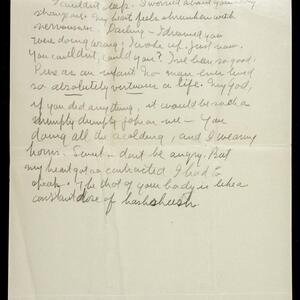 I couldn't sleep. I worried about you
My heart feels shrunken with
nervousness. Darling – I dreamed you
were doing wrong; I woke up. Just now.
You couldn't, could you? I've been so good.
Pure as an infant. No man ever lived
so absolutely virtuous a life. My God,
if you did anything, it would be such a
joke on me — You
doing all the scolding, and I wearing
horns. Sweet – don't be angry. But
my heart got so contracted I had to
speak. The thot of your body is like a
constant dose of hashshush